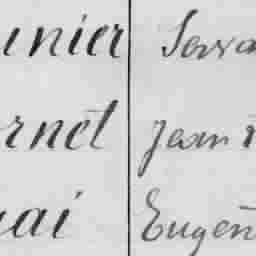 unier Serra
rnet Jean
uai Eugèn